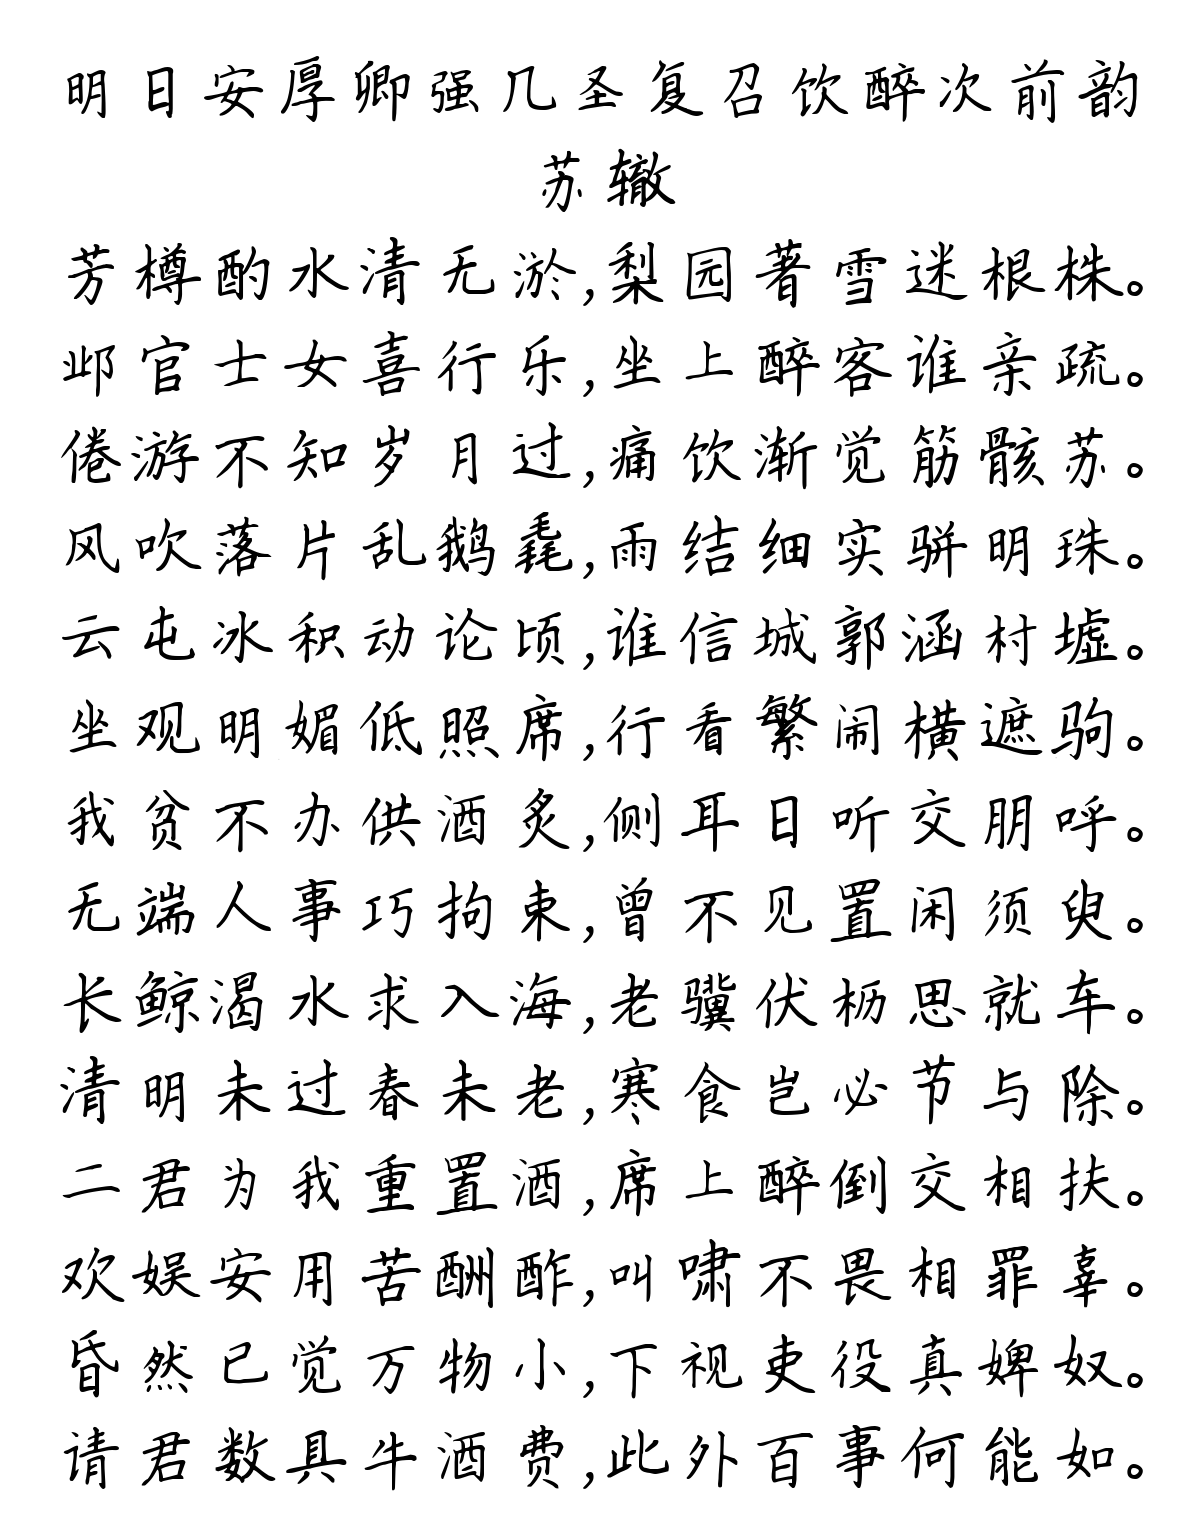 明日安厚卿强几圣复召饮醉次前韵
苏辙
芳樽酌水清无淤,梨园著雪迷根株。
邺官士女喜行乐,坐上醉客谁亲疏。
倦游不知岁月过,痛饮渐觉筋骸苏。
风吹落片乱鹅毳,雨结细实骈明珠。
云屯冰积动论顷,谁信城郭涵村墟。
坐观明媚低照席,行看繁闹横遮驹。
我贫不办供酒炙,侧耳日听交朋呼。
无端人事巧拘束,曾不见置闲须臾。
长鲸渴水求入海,老骥伏枥思就车。
清明未过春未老,寒食岂必节与除。
二君为我重置酒,席上醉倒交相扶。
欢娱安用苦酬酢,叫啸不畏相罪辜。
昏然已觉万物小,下视吏役真婢奴。
请君数具牛酒费,此外百事何能如。